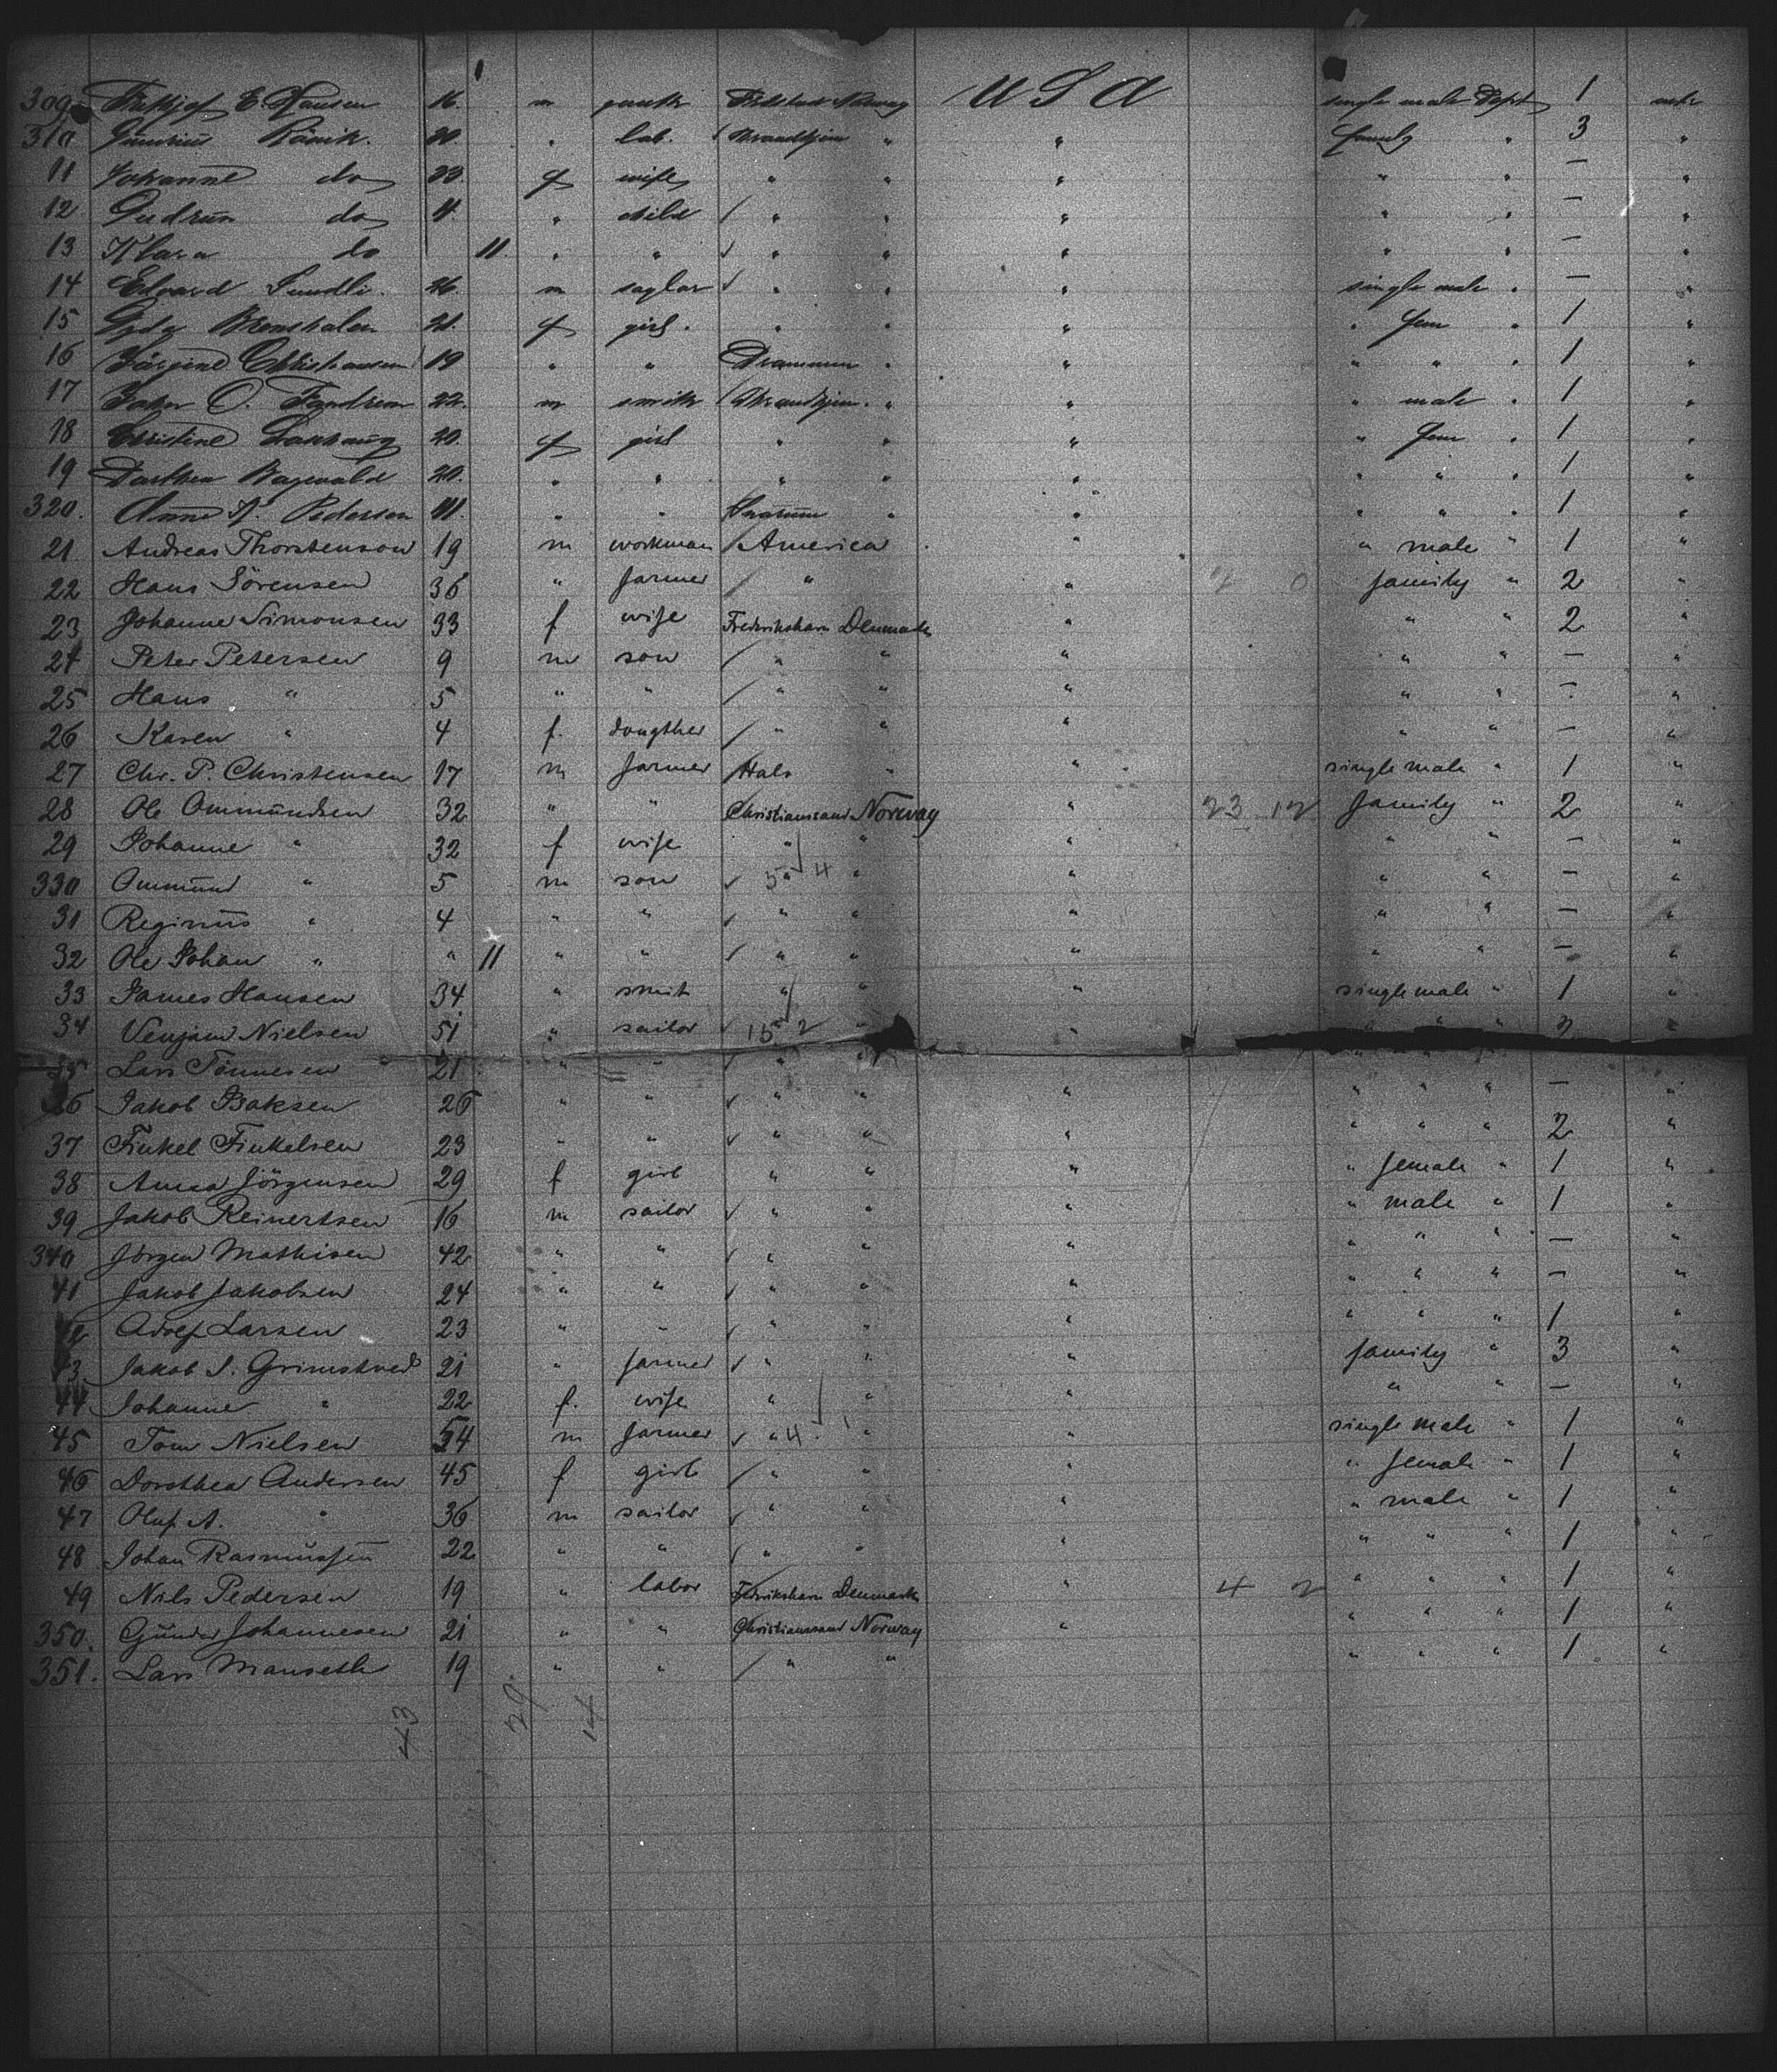 309 E. Hansen 16. m Norway U S A single male Dept 1
310 20. " lab. Throndhjem " " family " 3 "
11 Johanne do 23. f wife " " " " " — "
12 Gudrun do 4. " child " " " " " — "
13 Klara do 11. " " " " " " " — "
14 Edvard Sundli. 26. m " " " single male " — "
15 21. f girl. " " " " fem " 1 "
16 Christiansen 19 " " Drammen " " " " " 1 "
17 O. 22. m smith Throndhjem. " " " male " 1 "
18 Christine 20. f girl " " " " fem " 1 "
19 20. " " " " " " " " 1 "
320. Anna Pedersen " " " " " " " 1 "
21 Andreas Thorstenson 19 m workman America " " male " 1 "
22 Hans Sörensen 36 " farmer " " 2 0 family " 2 "
23 Johanne Simonsen 33 f wife Frederikshavn Denmark " " " 2 "
24 Peter Petersen 9 m son " " " " " — "
25 Hans " 5 " " " " " " " — "
26 Karen " 4 f. dougther " " " " " — "
27 Chr. P. Christensen 17 m farmer Hals " " single male " 1 "
28 Ole Ommundsen 32 " " Christianssand Norway " 23 12 family " 2 "
29 Johanne " 32 f wife " " " " " — "
330 Ommund " 5 m son " 5 4 " " " " — "
31 Reginius " 4 " " " " " " " — "
32 Ole Johan " " 11 " " " " " " " — "
33 James Hansen 34 " smit " " " single male " 1 "
34 Venjam Nielsen 51 " sailor 15 2 " " " " 2 "
35 Lars Tönnesen 21 " " " " " "
36 Jakob Isaksen 26 " " " " " " " " — "
37 Finkel Finkelsen 23 " " " " " " " " 2 "
38 Anna Jörgensen 29 f girl " " " " female " 1 "
39 Jakob Reinertsen 16 m sailor " " " " male " 1 "
340 Jörgen Mathisen 42 " " " " " " " " — "
41 Jakob Jakobsen 24 " " " " " " " " — "
42 Adolf Larsen 23 " " " " " " " " 1 "
43 Jakob S. Grimstved 21 " farmer " " " family " 3 "
44 Johanne " 22 f. wife " " " " " — "
45 Tom Nielsen 54 m farmer " 4 " " single male " 1 "
46 Dorothea Andersen 45 f girl " " " " female " 1 "
47 Oluf A. " 36 m sailor " " " " male " 1 "
48 Johan Rasmussen 22 " " " " " " " " 1 "
49 Nils Pedersen 19 " labor Fredrikshavn Denmark " 4 2 " " " 1 "
350. Gunder Johannesen 21 " " Christianssand Norway " " " " 1 "
351. Lars Manseth 19 " " " " " " " 1 "
43 29. 14